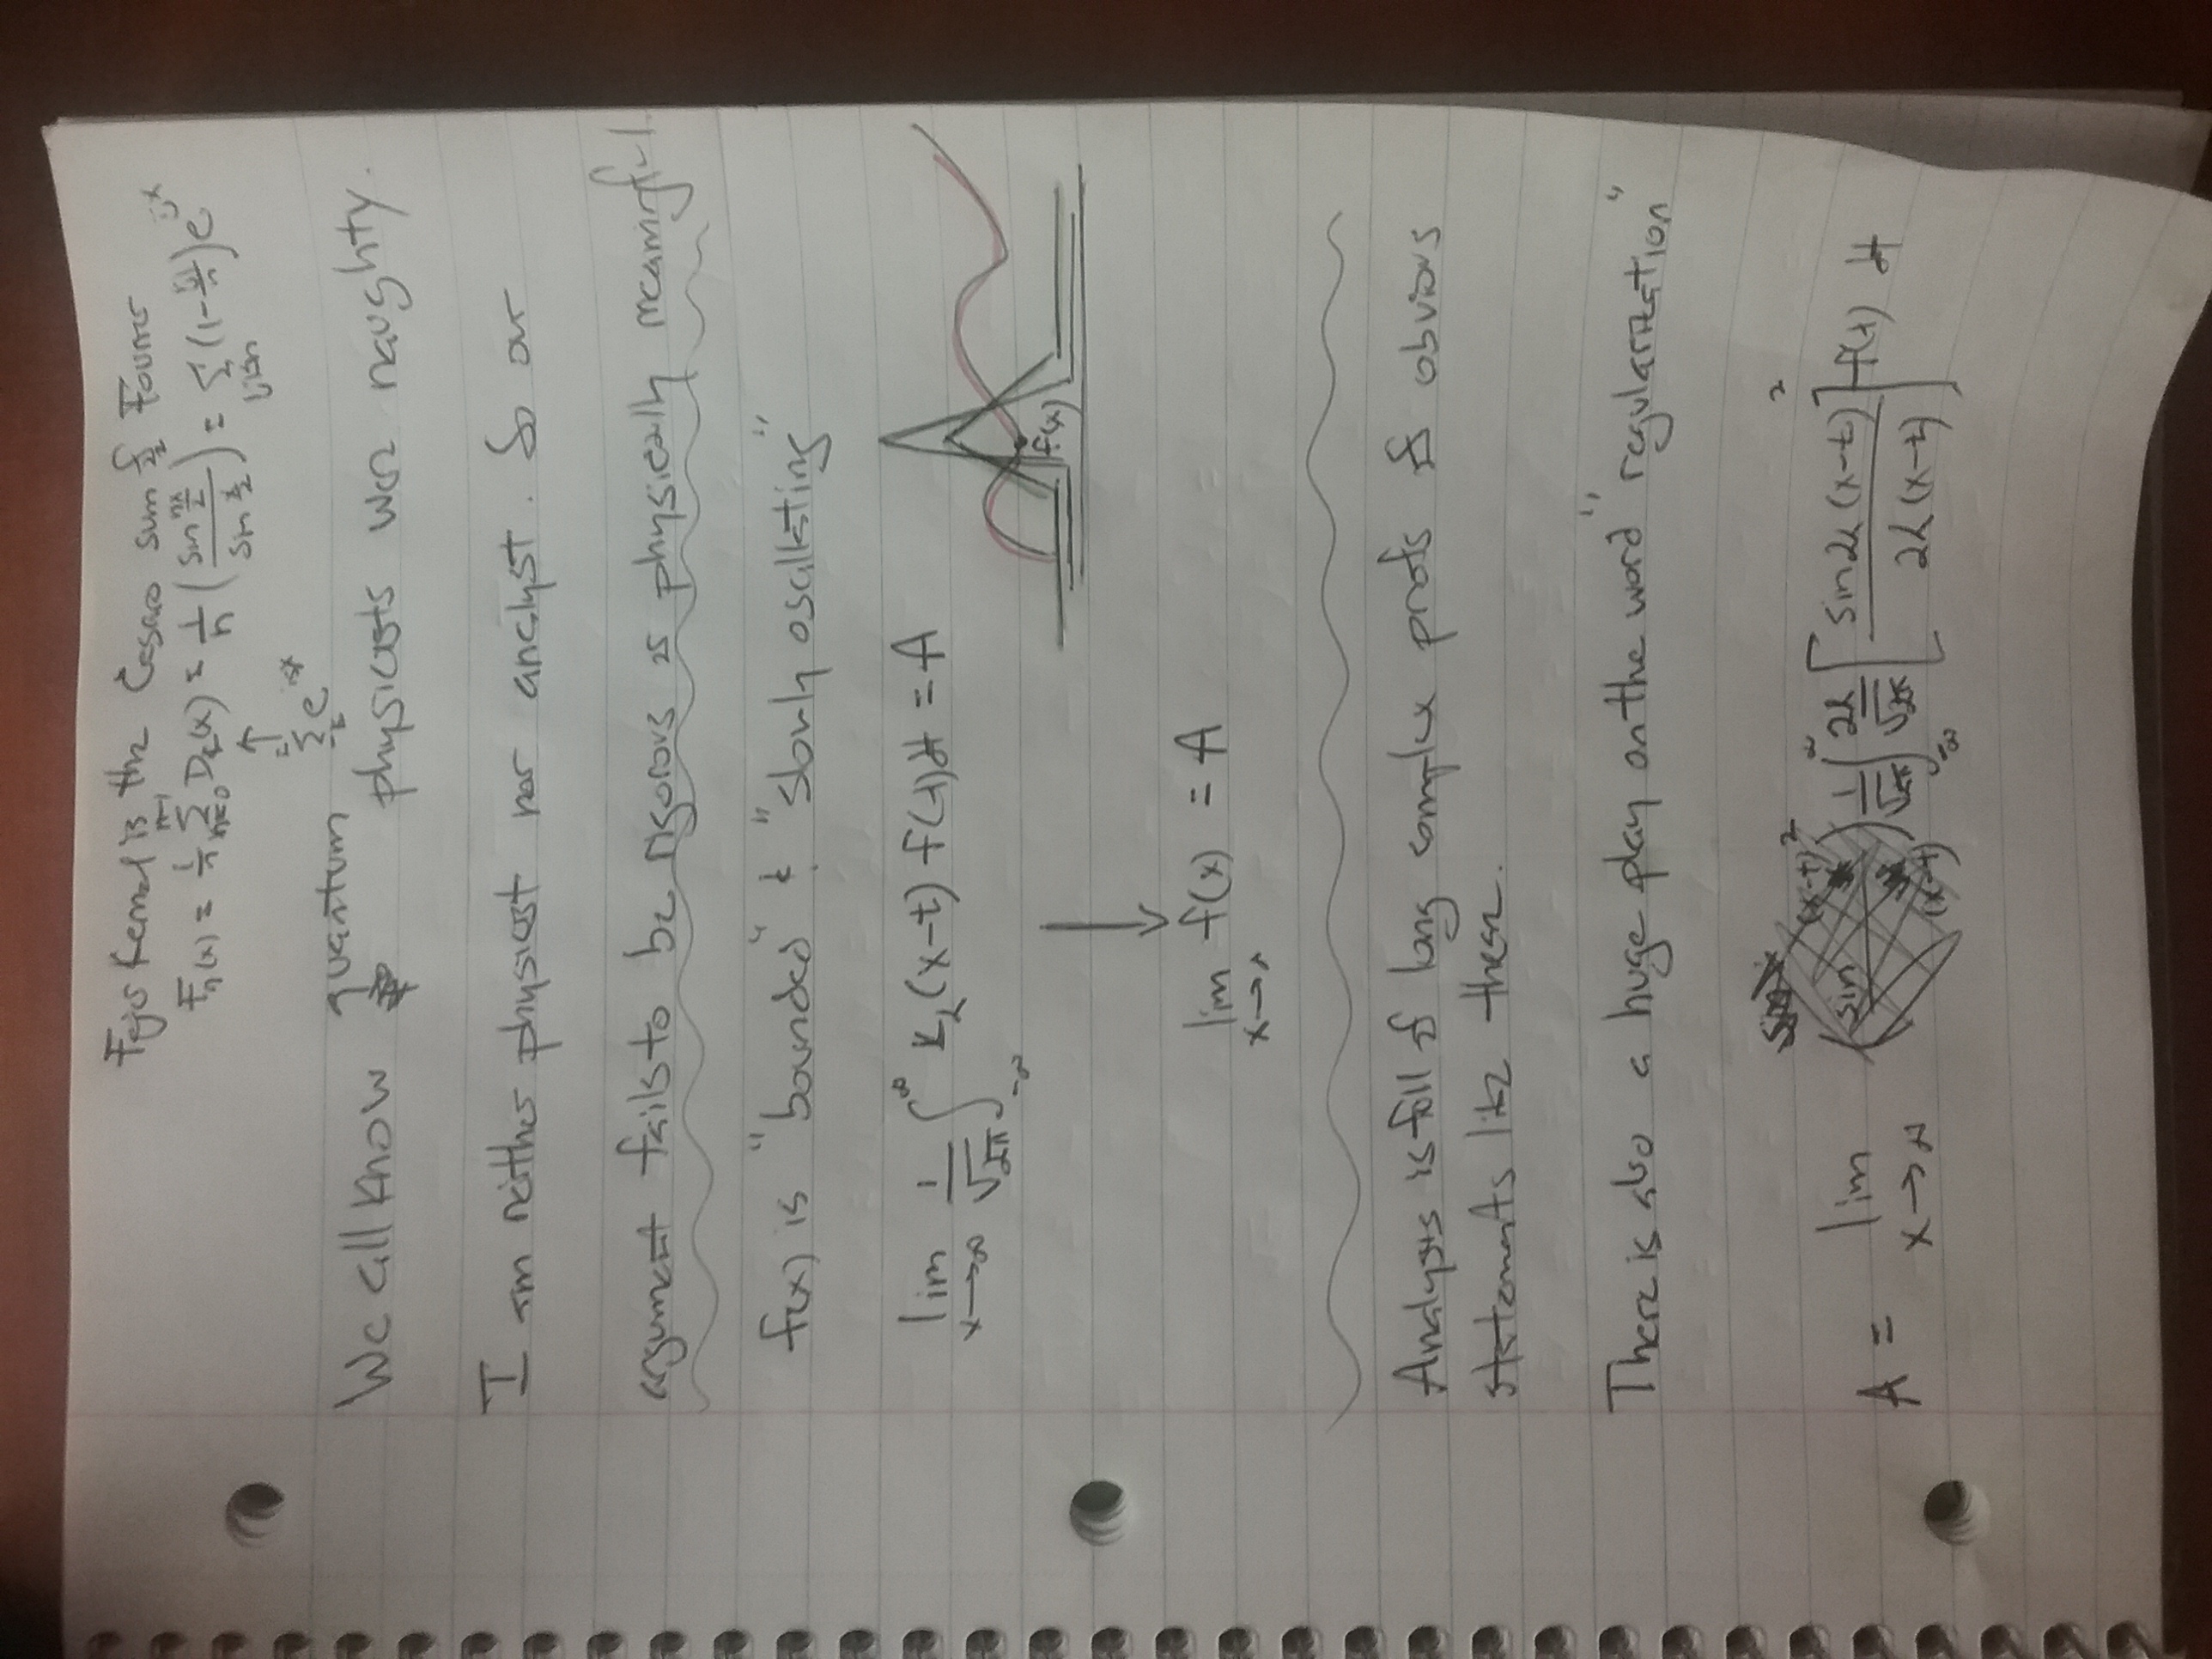 Fejer Kernel is the Cesaro sum of Fourier
Fₙ(x) = 1/n ∑_{k=0}^{n-1} Dₖ(x) = 1/n (sin nx/2 / sin x/2) = ∑_{|j|≤n} (1 - |j|/n) e^{ijx}
↑
∑ e^{isx}
We all know quantum physicists were naughty.
I am neither physicist nor analyst. So our
argument fails to be rigorous as physically meaningful.
f(x) is "bounded" & "slowly oscillating"
lim x→∞ 1/√2π ∫_{-∞}^{∞} K_λ(x-t) f(t) dt = A
f(x)
↓
lim x→∞ f(x) = A
Analysis is full of long complex proofs of obvious
statements like these.
There is also a huge play on the word "regularization"
A = lim x→∞ 1/√2π ∫_{-∞}^{∞} 2λ/√2π [sin 2λ(x-t) / 2λ(x-t)]² f(t) dt